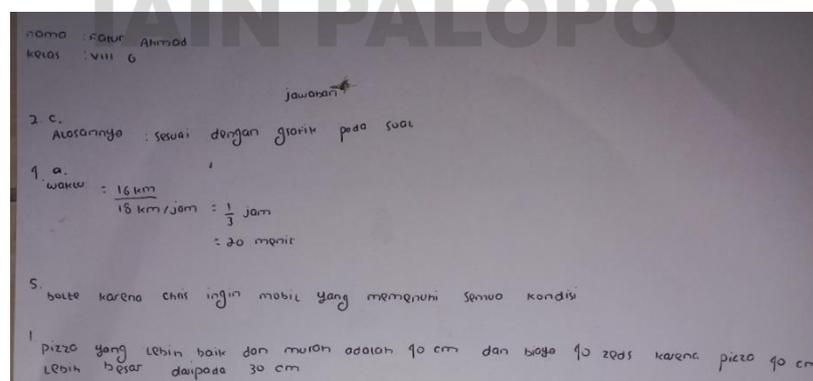 IAIN PALOPO
nama : Fatur Ahmad
kelas : VIII G
jawaban
2. c.
Alasannya : sesuai dengan grafik pada soal
4. a.
waktu = 16 km
18 km/jam = 1/3 jam
= 20 menit
5.
bolte karena chris ingin mobil yang memenuhi semua kondisi
1.
pizza yang lebih baik dan murah adalah 40 cm dan biaya 40 zeds karena pizza 40 cm
lebih besar daripada 30 cm